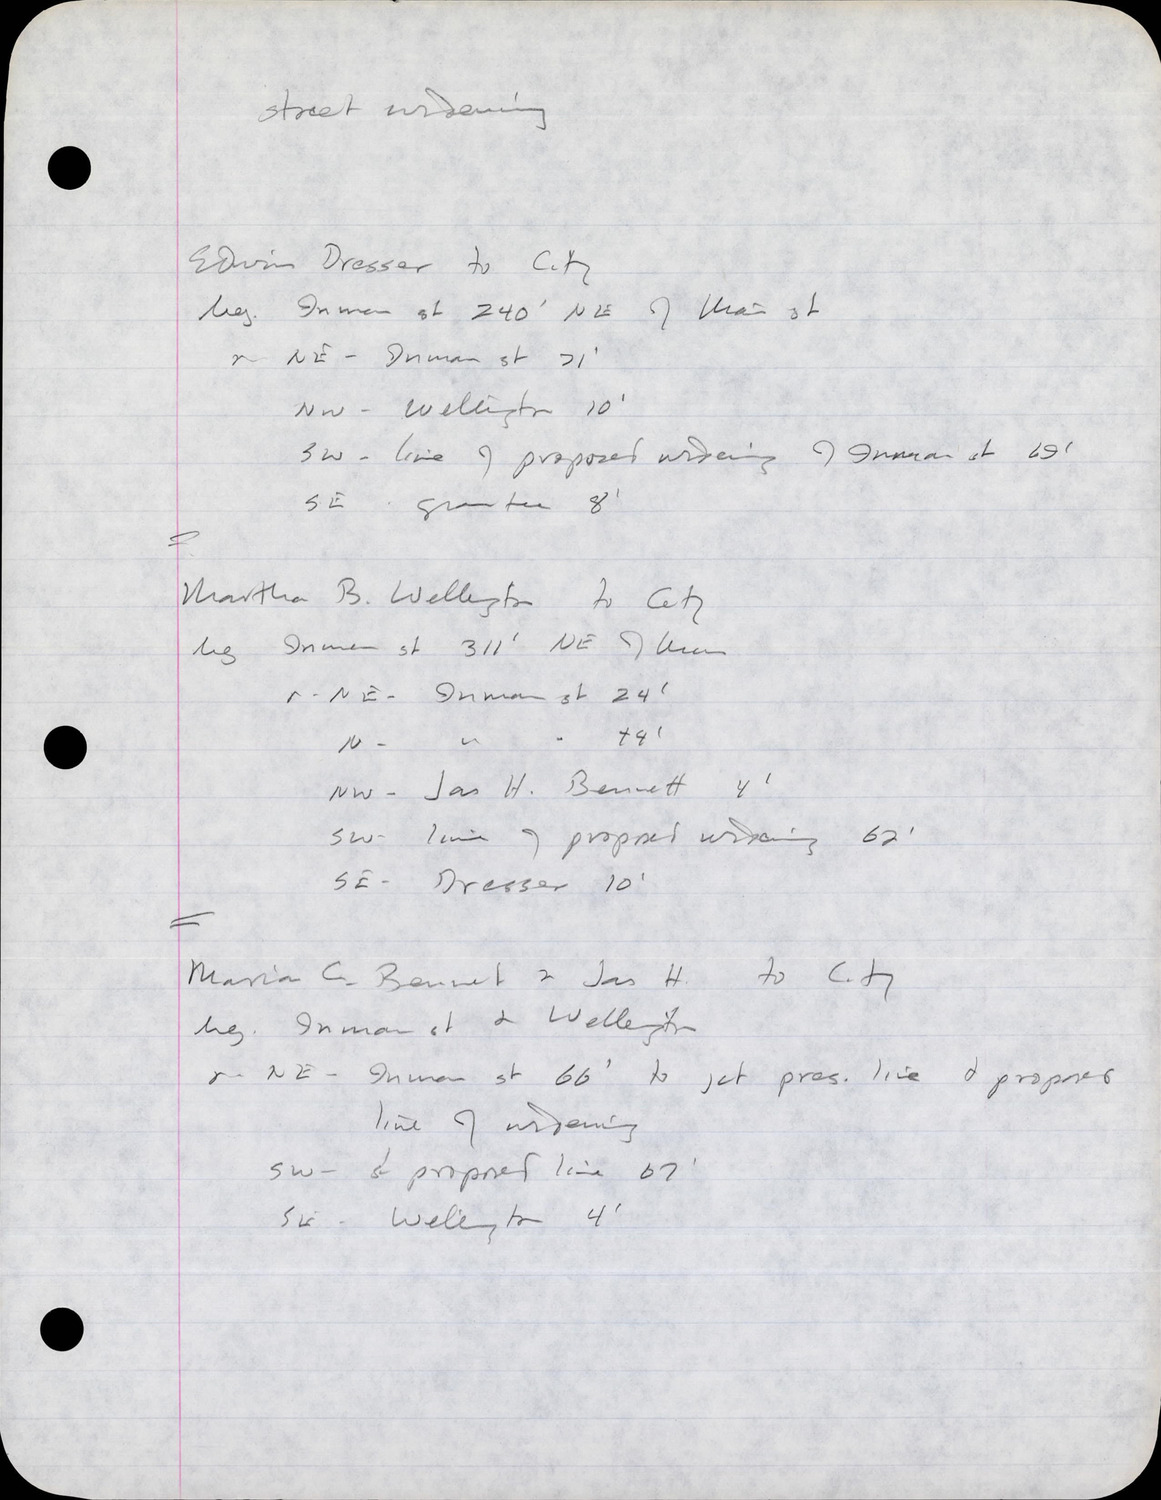 street widening
Edwin Dresser to City
beg. Inman st 240' NE of Main st
r NE - Inman st 71'
NW - Wellington 10'
SW - line of proposed widening of Inman st 69'
SE grantee 8'
=
Martha B. Wellington to City
beg Inman st 311' NE of Main
r - NE - Inman st 24'
N - " "
NW - Jas H. Bennett 4'
SW - line of proposed widening 62'
SE - Dresser 10'
=
Maria C. Bennet & Jas H. to City
beg. Inman st & Wellington
r NE - Inman st 66' to jct pres. line & proposed
line of widening
SW - proposed line 67'
SE - Wellington 4'